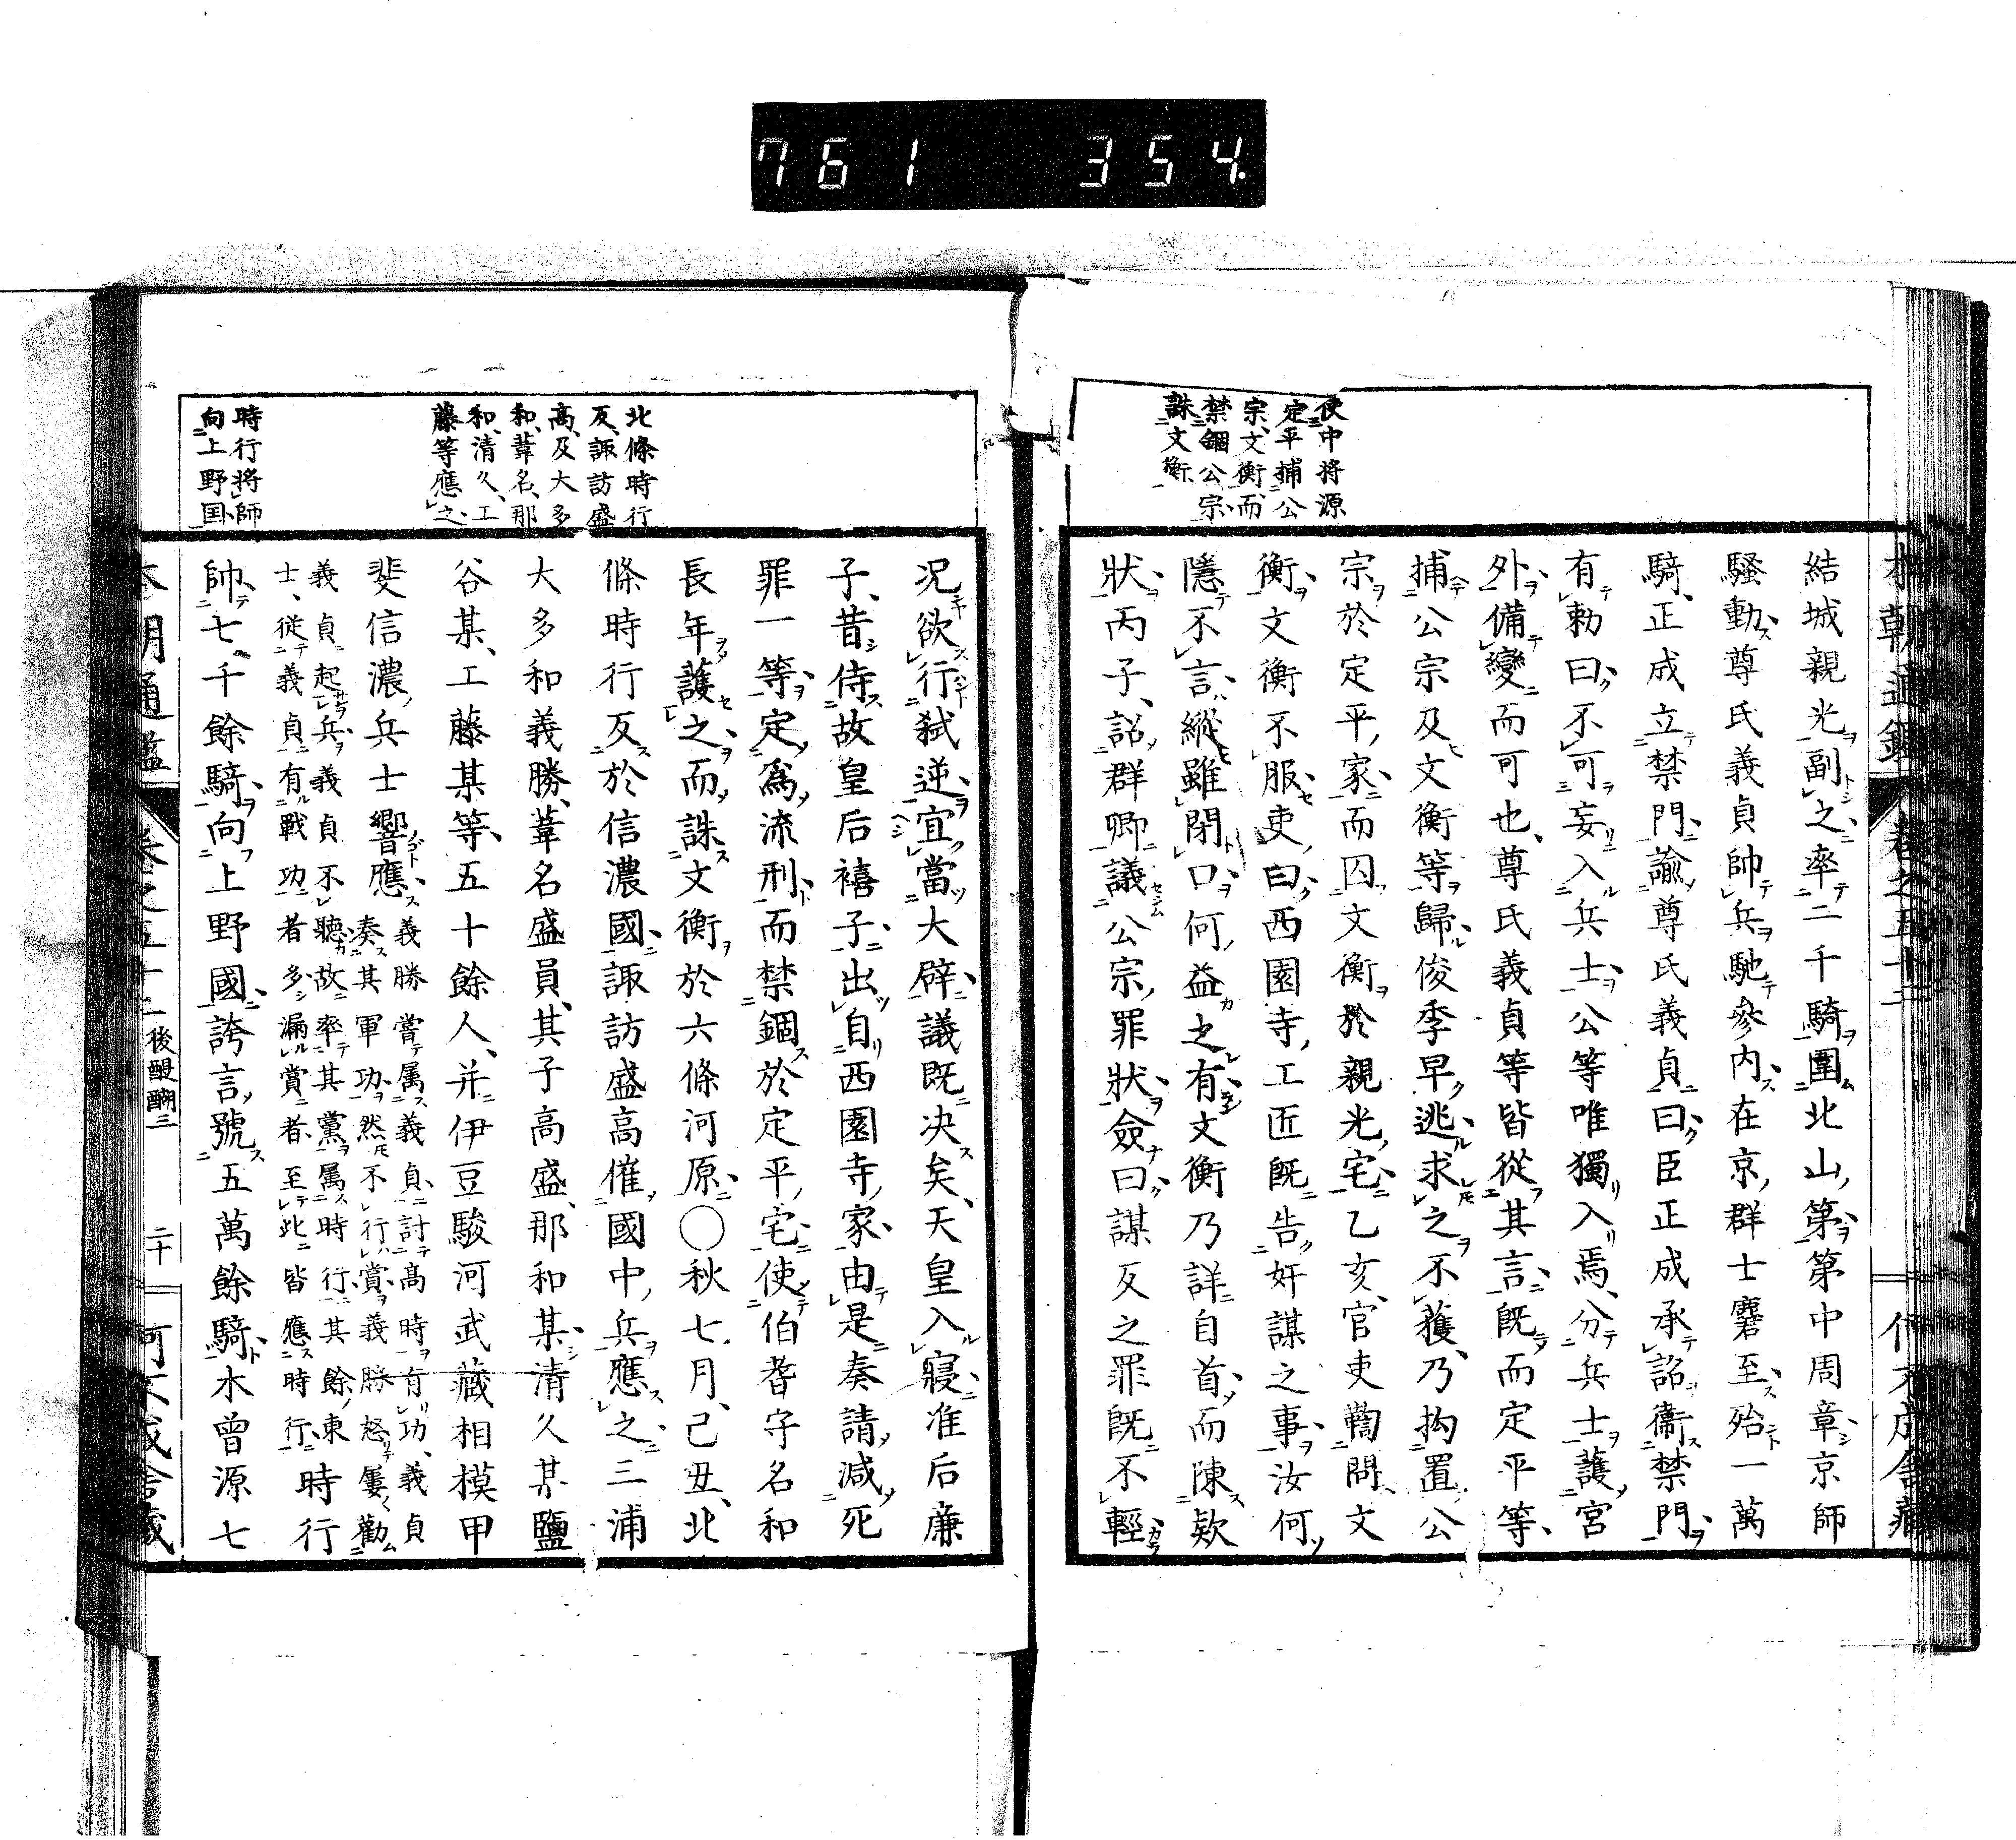 761 354.
使中將源
定平捕公
宗文衡而
禁錮公宗
誅文衡
結城親光副之率二千騎圍北山第第中周章京師
騷動尊氏義貞帥兵馳參內在京群士麕至殆一萬
騎正成立禁門諭尊氏義貞曰臣正成承詔衞禁門
有勅曰不可妄入兵士公等唯獨入焉分兵士護宮
外備變而可也尊氏義貞等皆從其言既而定平等
捕公宗及文衡等歸俊季早逃求之不獲乃拘置公
宗於定平家而囚文衡於親光宅乙亥官吏鞫問文
衡文衡不服吏曰西園寺工匠既告奸謀之事汝何
隱不言縱雖閉口何益之有文衡乃詳自首而陳欵
狀丙子詔群卿議公宗罪狀僉曰謀反之罪既不輕
北條時行
反諏訪盛
高及大多
和葦名那
和清久工
藤等應之
時行將師
向上野国
況欲行弒逆宜當大辟議既决矣天皇入寢准后廉
子昔侍故皇后禧子出自西園寺家由是奏請減死
罪一等定爲流刑而禁錮於定平宅使伯耆守名和
長年護之而誅文衡於六條河原〇秋七月己丑北
條時行反於信濃國諏訪盛高催國中兵應之三浦
大多和義勝葦名盛員其子高盛那和某清久某鹽
谷某工藤某等五十餘人并伊豆駿河武藏相模甲
斐信濃兵士響應義勝嘗属義貞討高時有功義貞
奏其軍功然不行賞義勝怒屢勸
義貞起兵義貞不聽故率其黨属時行其餘東
士從義貞有戰功者多漏賞者至此皆應時行
時行
帥七千餘騎向上野國誇言號五萬餘騎木曾源七
本朝通鑑 卷之五十二 後醍醐三 二十